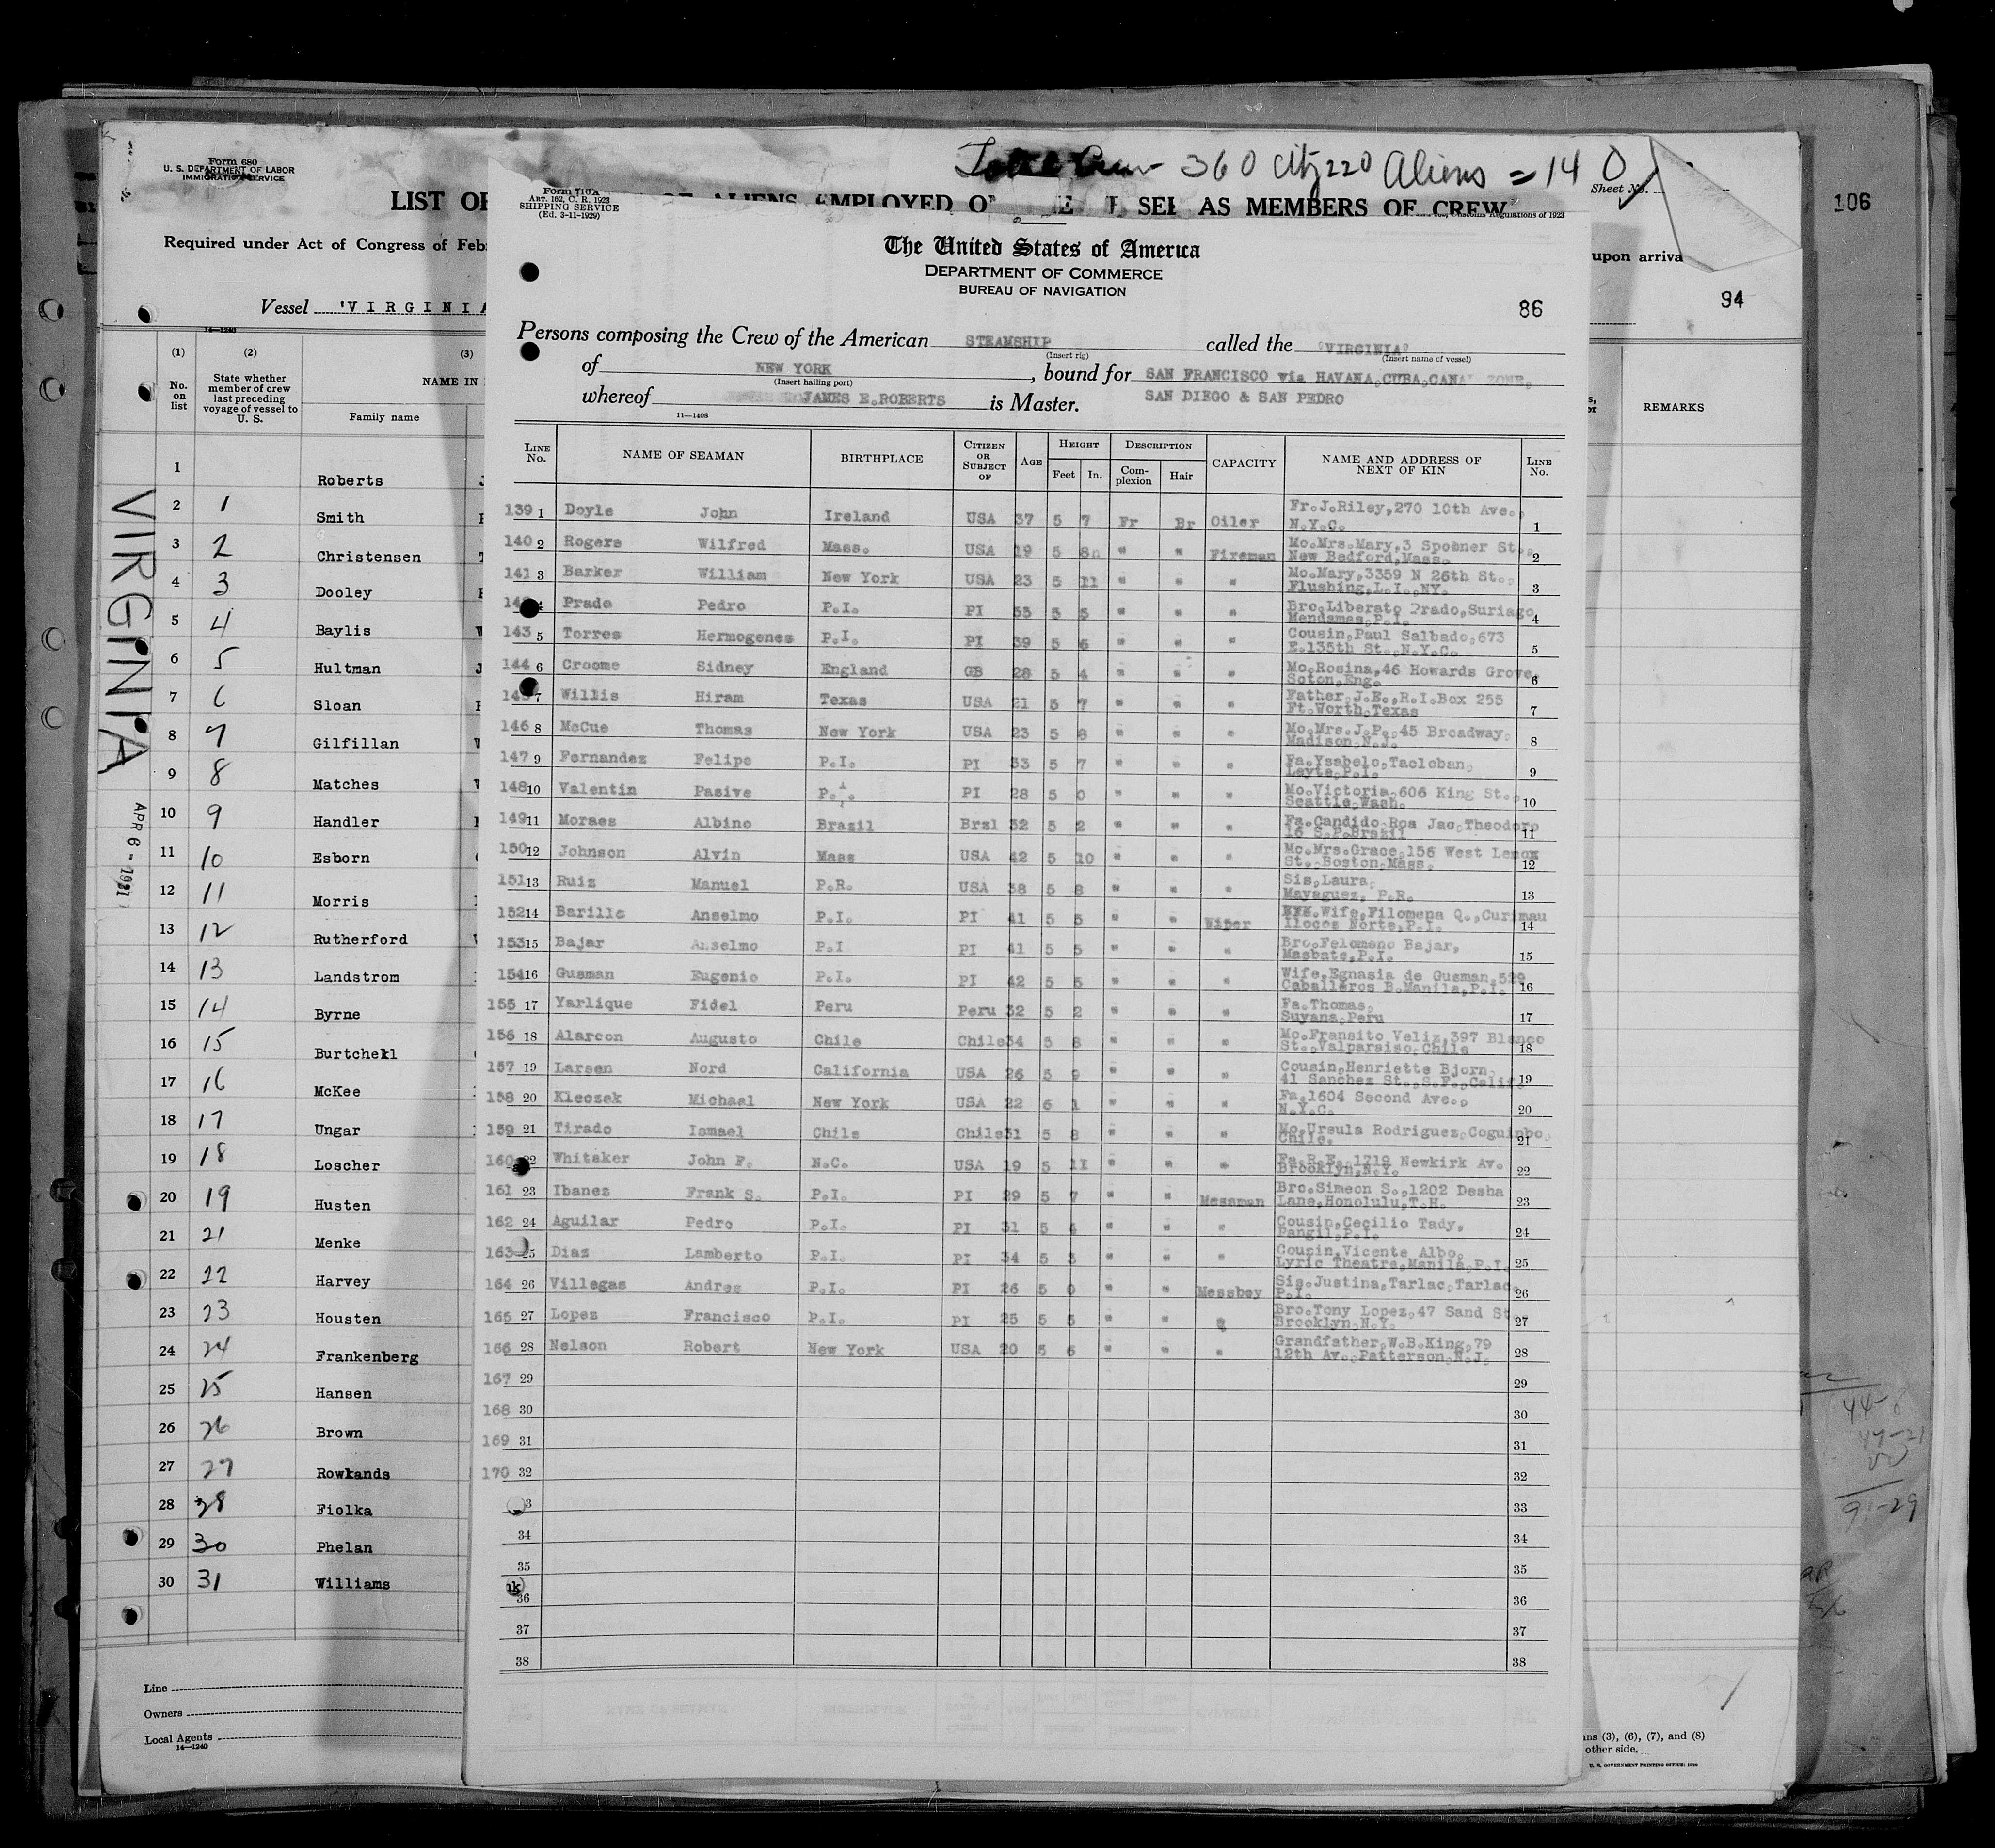 Total Crew 360 City 220 Aliens = 140
Form 680
U. S. DEPARTMENT OF LABOR
IMMIGRATION SERVICE
LIST OF ALIENS EMPLOYED AS MEMBERS OF CREW
Sheet No.
106
Required under Act of Congress of Feb
upon arriva
94
Vessel "VIRGINIA
14—1240
(1) (2) (3)
No. on list
State whether member of crew last preceding voyage of vessel to U. S.
NAME IN
Family name
REMARKS
1 Roberts
2 1 Smith
3 2 Christensen
4 3 Dooley
5 4 Baylis
6 5 Hultman
7 6 Sloan
8 7 Gilfillan
9 8 Matches
10 9 Handler
11 10 Esborn
12 11 Morris
13 12 Rutherford
14 13 Landstrom
15 14 Byrne
16 15 Burtchell
17 16 McKee
18 17 Ungar
19 18 Loscher
20 19 Husten
21 21 Menke
22 22 Harvey
23 23 Housten
24 24 Frankenberg
25 25 Hansen
26 26 Brown
27 27 Rowlands
28 28 Fiolka
29 30 Phelan
30 31 Williams
VIRGINIA
APR 6 - 1931
Line
Owners
Local Agents
14—1240
Form 710A
ART. 162, C. R. 1923
SHIPPING SERVICE
(Ed. 3-11-1929)
Customs Regulations of 1923
The United States of America
DEPARTMENT OF COMMERCE
BUREAU OF NAVIGATION
86
Persons composing the Crew of the American STEAMSHIP called the "VIRGINIA"
(Insert rig) (Insert name of vessel)
of NEW YORK, bound for SAN FRANCISCO via HAVANA,CUBA,CANAL ZONE,
(Insert hailing port)
whereof JAMES E.ROBERTS is Master. SAN DIEGO & SAN PEDRO
11—1408
LINE No. NAME OF SEAMAN BIRTHPLACE CITIZEN OR SUBJECT OF AGE HEIGHT Feet In. DESCRIPTION Complexion Hair CAPACITY NAME AND ADDRESS OF NEXT OF KIN LINE No.
139 1 Doyle John Ireland USA 37 5 7 Fr Br Oiler Fr.J.Riley,270 10th Ave., N.Y.C. 1
140 2 Rogers Wilfred Mass. USA 19 5 8 " " Fireman Mo.Mrs.Mary,3 Spooner St., New Bedford,Mass. 2
141 3 Barker William New York USA 23 5 11 " " " Mo.Mary,3359 N 26th St., Flushing,L.I.,NY. 3
142 4 Prado Pedro P.I. PI 35 5 5 " " " Bro.Liberato Prado,Suriago, Mendames,P.I. 4
143 5 Torres Hermogenes P.I. PI 39 5 6 " " " Cousin,Paul Salbado,673 E.135th St.,N.Y.C. 5
144 6 Croome Sidney England GB 28 5 4 " " " Mo.Rosina,46 Howards Grove, Soton,Eng. 6
145 7 Willis Hiram Texas USA 21 5 7 " " " Father,J.E.,R.I.Box 255 Ft.Worth,Texas 7
146 8 McCue Thomas New York USA 23 5 8 " " " Mo.Mrs.J.P.,45 Broadway, Madison,N.J. 8
147 9 Fernandez Felipe P.I. PI 33 5 7 " " " Fa.Ysabelo,Tacloban, Leyte,P.I. 9
148 10 Valentin Pasive P.I. PI 28 5 0 " " " Mo.Victoria,606 King St., Seattle,Wash. 10
149 11 Moraes Albino Brazil Brzl 32 5 2 " " " Fa.Candido Roa Jac,Theodoro 16 S.P.Brazil 11
150 12 Johnson Alvin Mass USA 42 5 10 " " " Mo.Mrs.Grace,156 West Lenox St.,Boston,Mass. 12
151 13 Ruiz Manuel P.R. USA 38 5 8 " " " Sis,Laura, Mayaguez, P.R. 13
152 14 Barille Anselmo P.I. PI 41 5 5 " " Wiper Wife,Filomena Q.,Curimau Ilocos Norte,P.I. 14
153 15 Bajar Anselmo P.I PI 41 5 5 " " " Bro.Felomeno Bajar, Masbate,P.I. 15
154 16 Gusman Eugenio P.I. PI 42 5 5 " " " Wife,Egnasia de Gusman,529 Caballeros B.Manila,P.I. 16
155 17 Yarlique Fidel Peru Peru 32 5 2 " " " Fa.Thomas, Suyana,Peru 17
156 18 Alarcon Augusto Chile Chile 34 5 8 " " " Mo.Fransito Veliz,397 Blanco St.,Valparsiso,Chile 18
157 19 Larsen Nord California USA 26 5 9 " " " Cousin,Henriette Bjorn, 41 Sanchez St.,S.F.,Calif. 19
158 20 Kleczek Michael New York USA 22 6 1 " " " Fa,1604 Second Ave., N.Y.C. 20
159 21 Tirado Ismael Chile Chile 31 5 8 " " " Mo.Ursula Rodriguez,Coguinbo, Chile. 21
160 22 Whitaker John F. N.C. USA 19 5 11 " " " Fa.R.E.,1719 Newkirk Av. Brooklyn,N.Y. 22
161 23 Ibanez Frank S. P.I. PI 29 5 7 " " Messman Bro.Simeon S.,1202 Desha Lane,Honolulu,T.H. 23
162 24 Aguilar Pedro P.I. PI 31 5 4 " " " Cousin,Cecilio Tady, Pangil,P.I. 24
163 25 Diaz Lamberto P.I. PI 34 5 3 " " " Cousin,Vicente Albo, Lyric Theatre,Manila,P.I. 25
164 26 Villegas Andres P.I. PI 26 5 0 " " Messboy Sis.Justina,Tarlac,Tarlac, P.I. 26
165 27 Lopez Francisco P.I. PI 25 5 5 " " " Bro.Tony Lopez,47 Sand St. Brooklyn,N.Y. 27
166 28 Nelson Robert New York USA 20 5 6 " " " Grandfather,W.B.King,79 12th Av.,Patterson,N.J. 28
167 29 29
168 30 30
169 31 31
170 32 32
3 33
34 34
35 35
36 36
37 37
38 38
44-8
47-21
91-29
ns (3), (6), (7), and (8)
other side.
U. S. GOVERNMENT PRINTING OFFICE: 1930